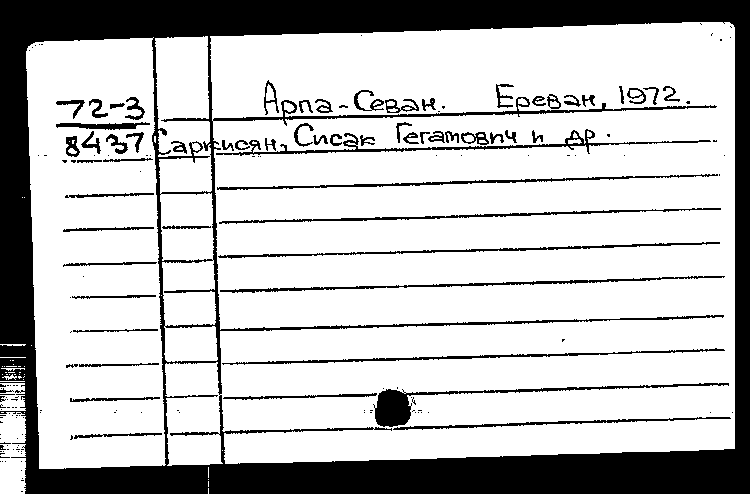 72-3 Арпа-Севан. Ереван, 1972.
8437 Саркисян, Сисак Гегамович и др.